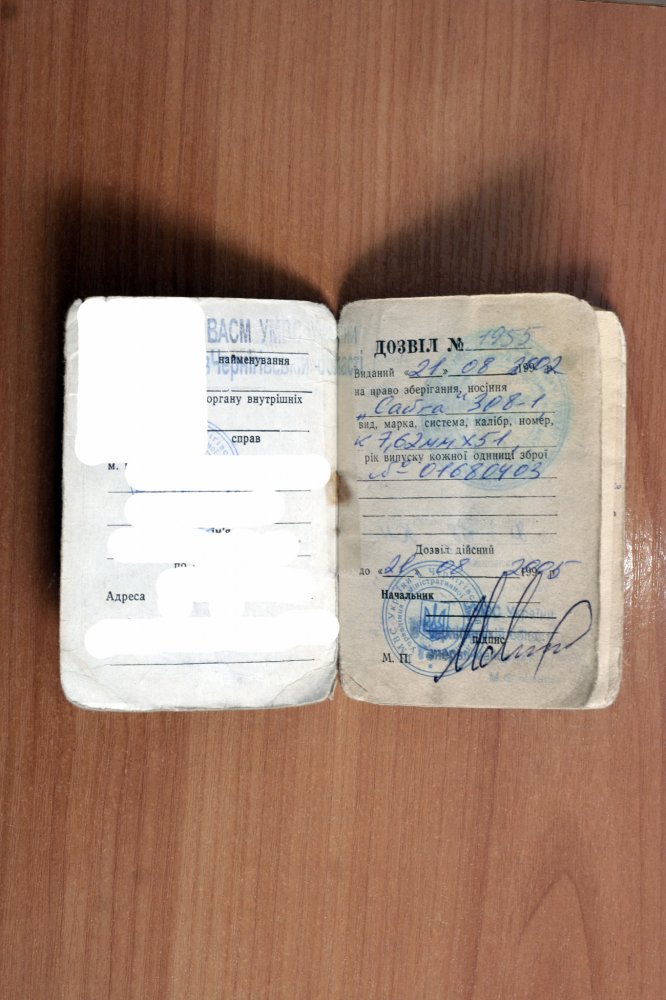 ВАСМ УМВС
найменування
Чернігівській області
органу внутрішніх
справ
м.
по
Адреса
ДОЗВІЛ № 1955
Виданий «21» 08 2002 р.
на право зберігання, носіння
„Сайга" 308-1
вид, марка, система, калібр, номер,
к 7,62ммх51,
рік випуску кожної одиниці зброї
№ 01680403
Дозвіл дійсний
до «21» 08 2005 р.
Начальник
підпис
М. П.